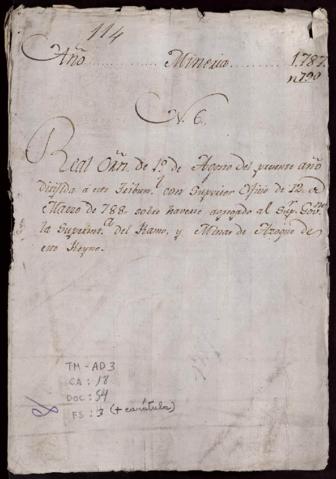 114
Año Mineria 1787
N. 6.
Real Orñ. de 1º de Agosto del presente año
dirijida à este Tribun.l con Superior Oficio de 12 de
Marzo de 788. sobre haverse agregado al Sup.r Gov.no
la Superint.a del Ramo, y Minas de Azogue de
este Reyno.
TM-AD3
CA: 18
DOC: 54
FS: 3 (+ carátula)